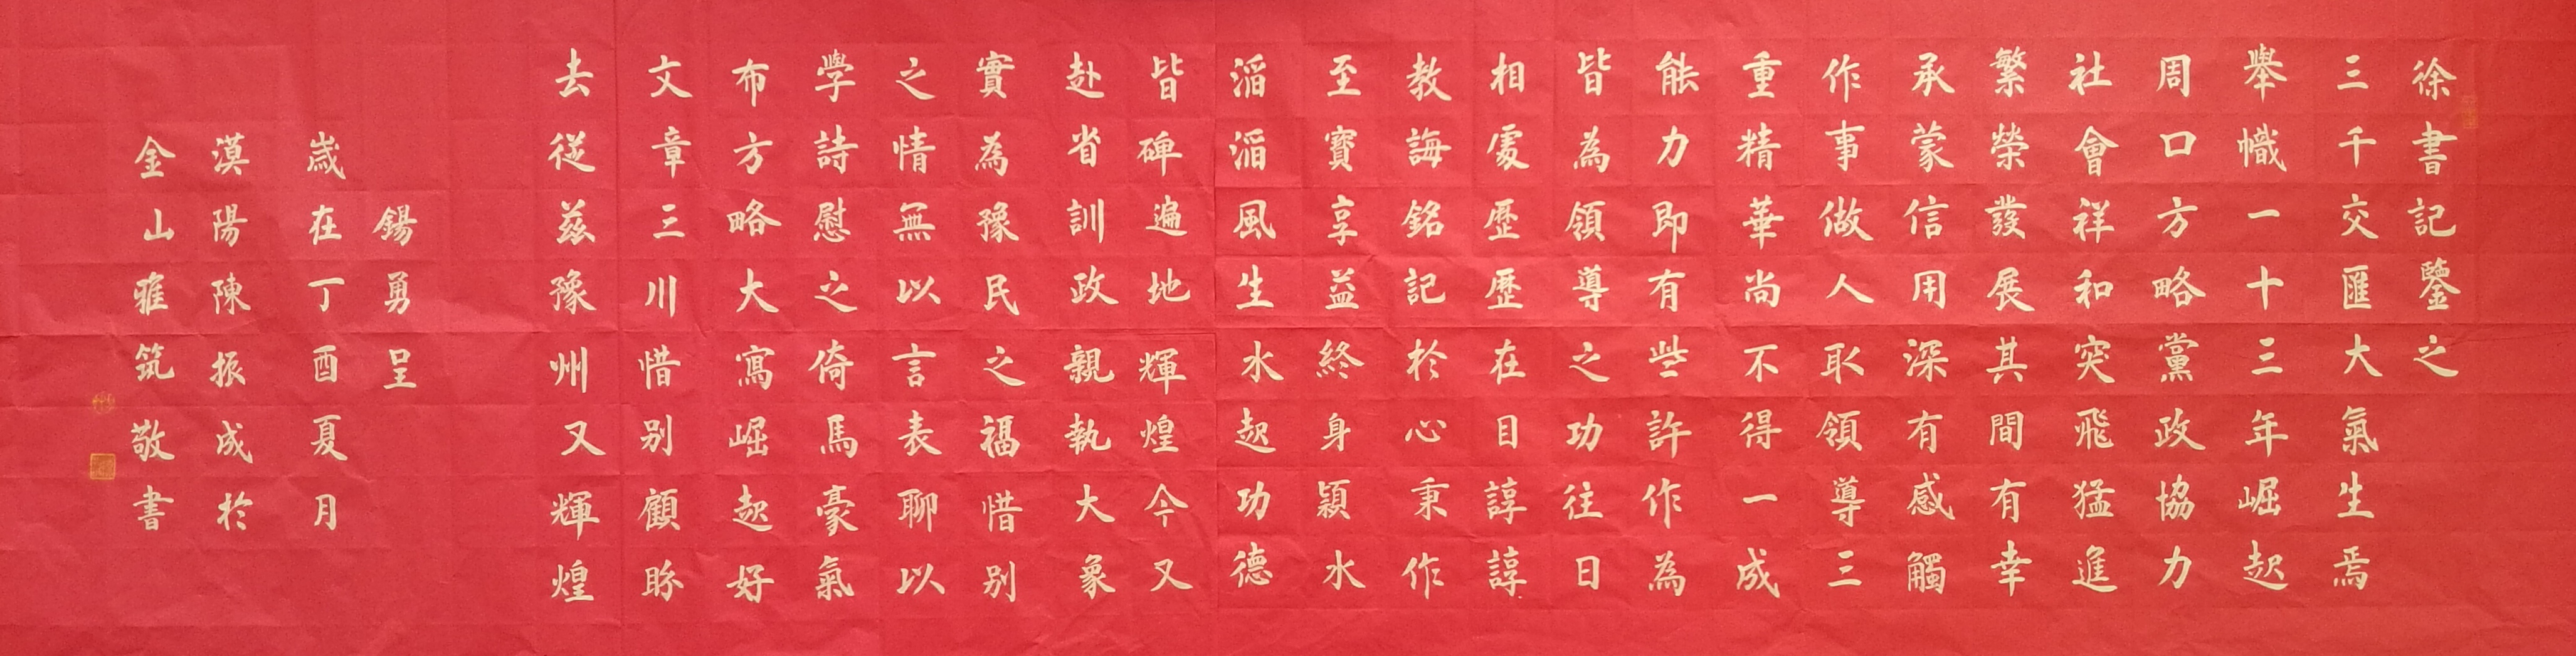 徐書記鑒之
三千交匯大氣生焉
舉幟一十三年崛起
周口方略黨政協力
社會祥和突飛猛進
繁榮發展其間有幸
承蒙信用深有感觸
作事做人取領導三
重精華尚不得一成
能力即有些許作為
皆為領導之功往日
相處歷歷在目諄諄
教誨銘記於心秉作
至寶享益終身潁水
滔滔風生水起功德
皆碑遍地輝煌今又
赴省訓政親執大象
實為豫民之福惜别
之情無以言表聊以
學詩慰之倚馬豪氣
布方略大寫崛起好
文章三川惜别顧盼
去從兹豫州又輝煌
錫勇呈
歲在丁酉夏月
漠陽陳振成於
金山雅筑敬書